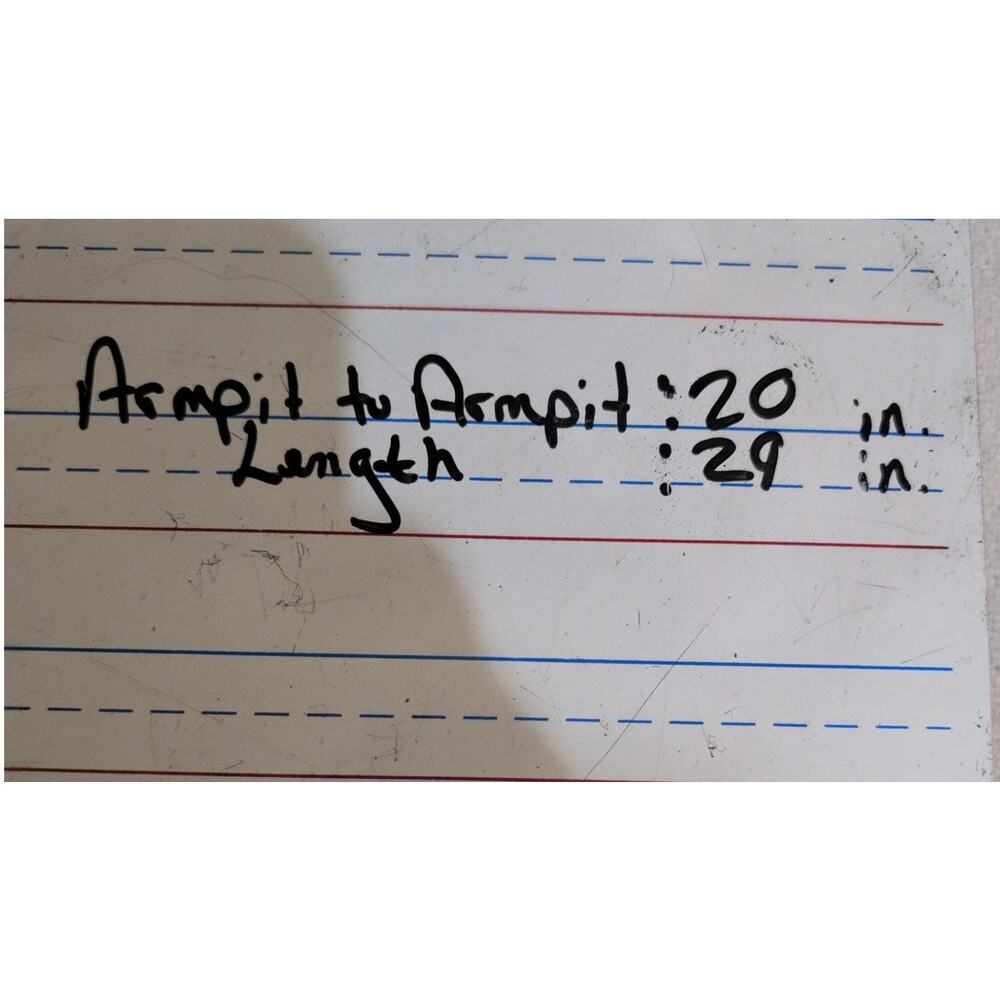 Armpit to Armpit : 20 in.
Length : 29 in.